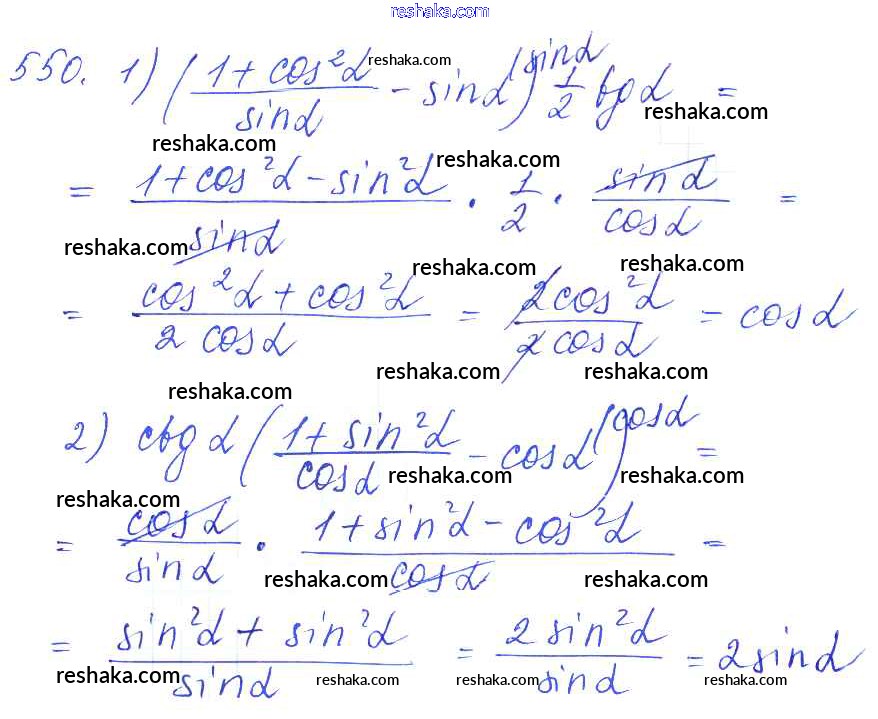 reshaka.com
550. 1) ((1 + cos²α)/sinα - sinα^(sinα) ) 1/2 tg α =
reshaka.com
reshaka.com
reshaka.com
reshaka.com
= (1 + cos²α - sin²α)/sinα · 1/2 · sinα/cosα =
reshaka.com
reshaka.com
reshaka.com
= (cos²α + cos²α)/(2 cosα) = 2cos²α/(2cosα) = cosα
reshaka.com
reshaka.com
reshaka.com
2) ctg α ((1 + sin²α)/cosα - cosα^(cosα) ) =
reshaka.com
reshaka.com
reshaka.com
= cosα/sinα · (1 + sin²α - cos²α)/cosα =
reshaka.com
reshaka.com
= (sin²α + sin²α)/sinα = 2 sin²α/sinα = 2sinα
reshaka.com
reshaka.com
reshaka.com
reshaka.com